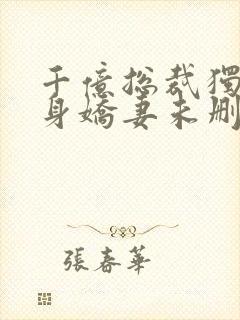 千億總裁獨
身嬌妻未刪
張春華